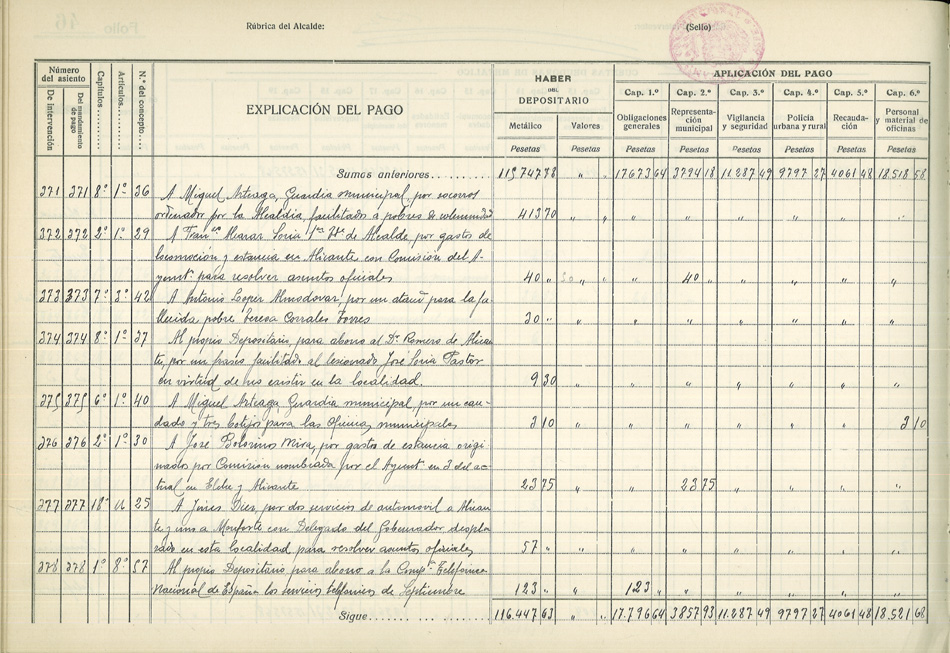 Rúbrica del Alcalde:
(Sello)
Número del asiento
De intervención
Del mandamiento de pago
Capítulos
Artículos
N.º del concepto
EXPLICACIÓN DEL PAGO
HABER DEL DEPOSITARIO
Metálico
Valores
Pesetas
Pesetas
APLICACIÓN DEL PAGO
Cap. 1.º Cap. 2.º Cap. 3.º Cap. 4.º Cap. 5.º Cap. 6.º
Obligaciones generales
Representación municipal
Vigilancia y seguridad
Policía urbana y rural
Recaudación
Personal y material de oficinas
Pesetas Pesetas Pesetas Pesetas Pesetas Pesetas
Sumas anteriores 17.673 64 3794 18 11.287 49 9797 27 4061 48 18.518 58
371 371 8º 1º 36 A Miguel Arteaga, Guardia municipal, por socorros
ordenador por la Alcaldía, facilitados a pobres de solemnidad 413 70
372 372 2º 1º 29 Soria 1er Tte de Alcalde, por gastos de
locomoción y estancia en Alicante con Comisión del A-
yumtº para resolver asuntos oficiales 40 " 40 "
373 373 7º 3º 42 A Antonio Lopez Almodovar, por un ataud para la fa-
llecida pobre Teresa Corrales Torres 30 "
374 374 8º 1º 37 Al propio Depositario, para abono al Dr. Romero de Alican-
te, por un facilitado al lesionado José Soria Pastor
en virtud de no existir en la localidad. 9 30
375 375 6º 1º 40 A Miguel Arteaga, Guardia municipal, por un can-
dado y tres botijos para las Oficinas municipales 3 10 3 10
376 376 2º 1º 30 A José Mira, por gastos de estancia origi-
nados por Comisión nombrada por el Ayumtº en 3 del ac-
tual en Elche y Alicante 23 75 23 75
377 377 18º u 25 A Díez, por dos servicios de automovil a Alican-
te y uno a Monforte con Delegado del Gobernador despla-
zado en esta localidad para resolver asuntos oficiales 57 "
378 378 1º 8º 57 Al propio Depositario para abono a la Compª Telefónica
Nacional de España los servicios telefónicos de Septiembre 123 " 123 "
Sigue 116.447 63 17.796 64 3857 93 11.287 49 9797 27 4061 48 18.521 68